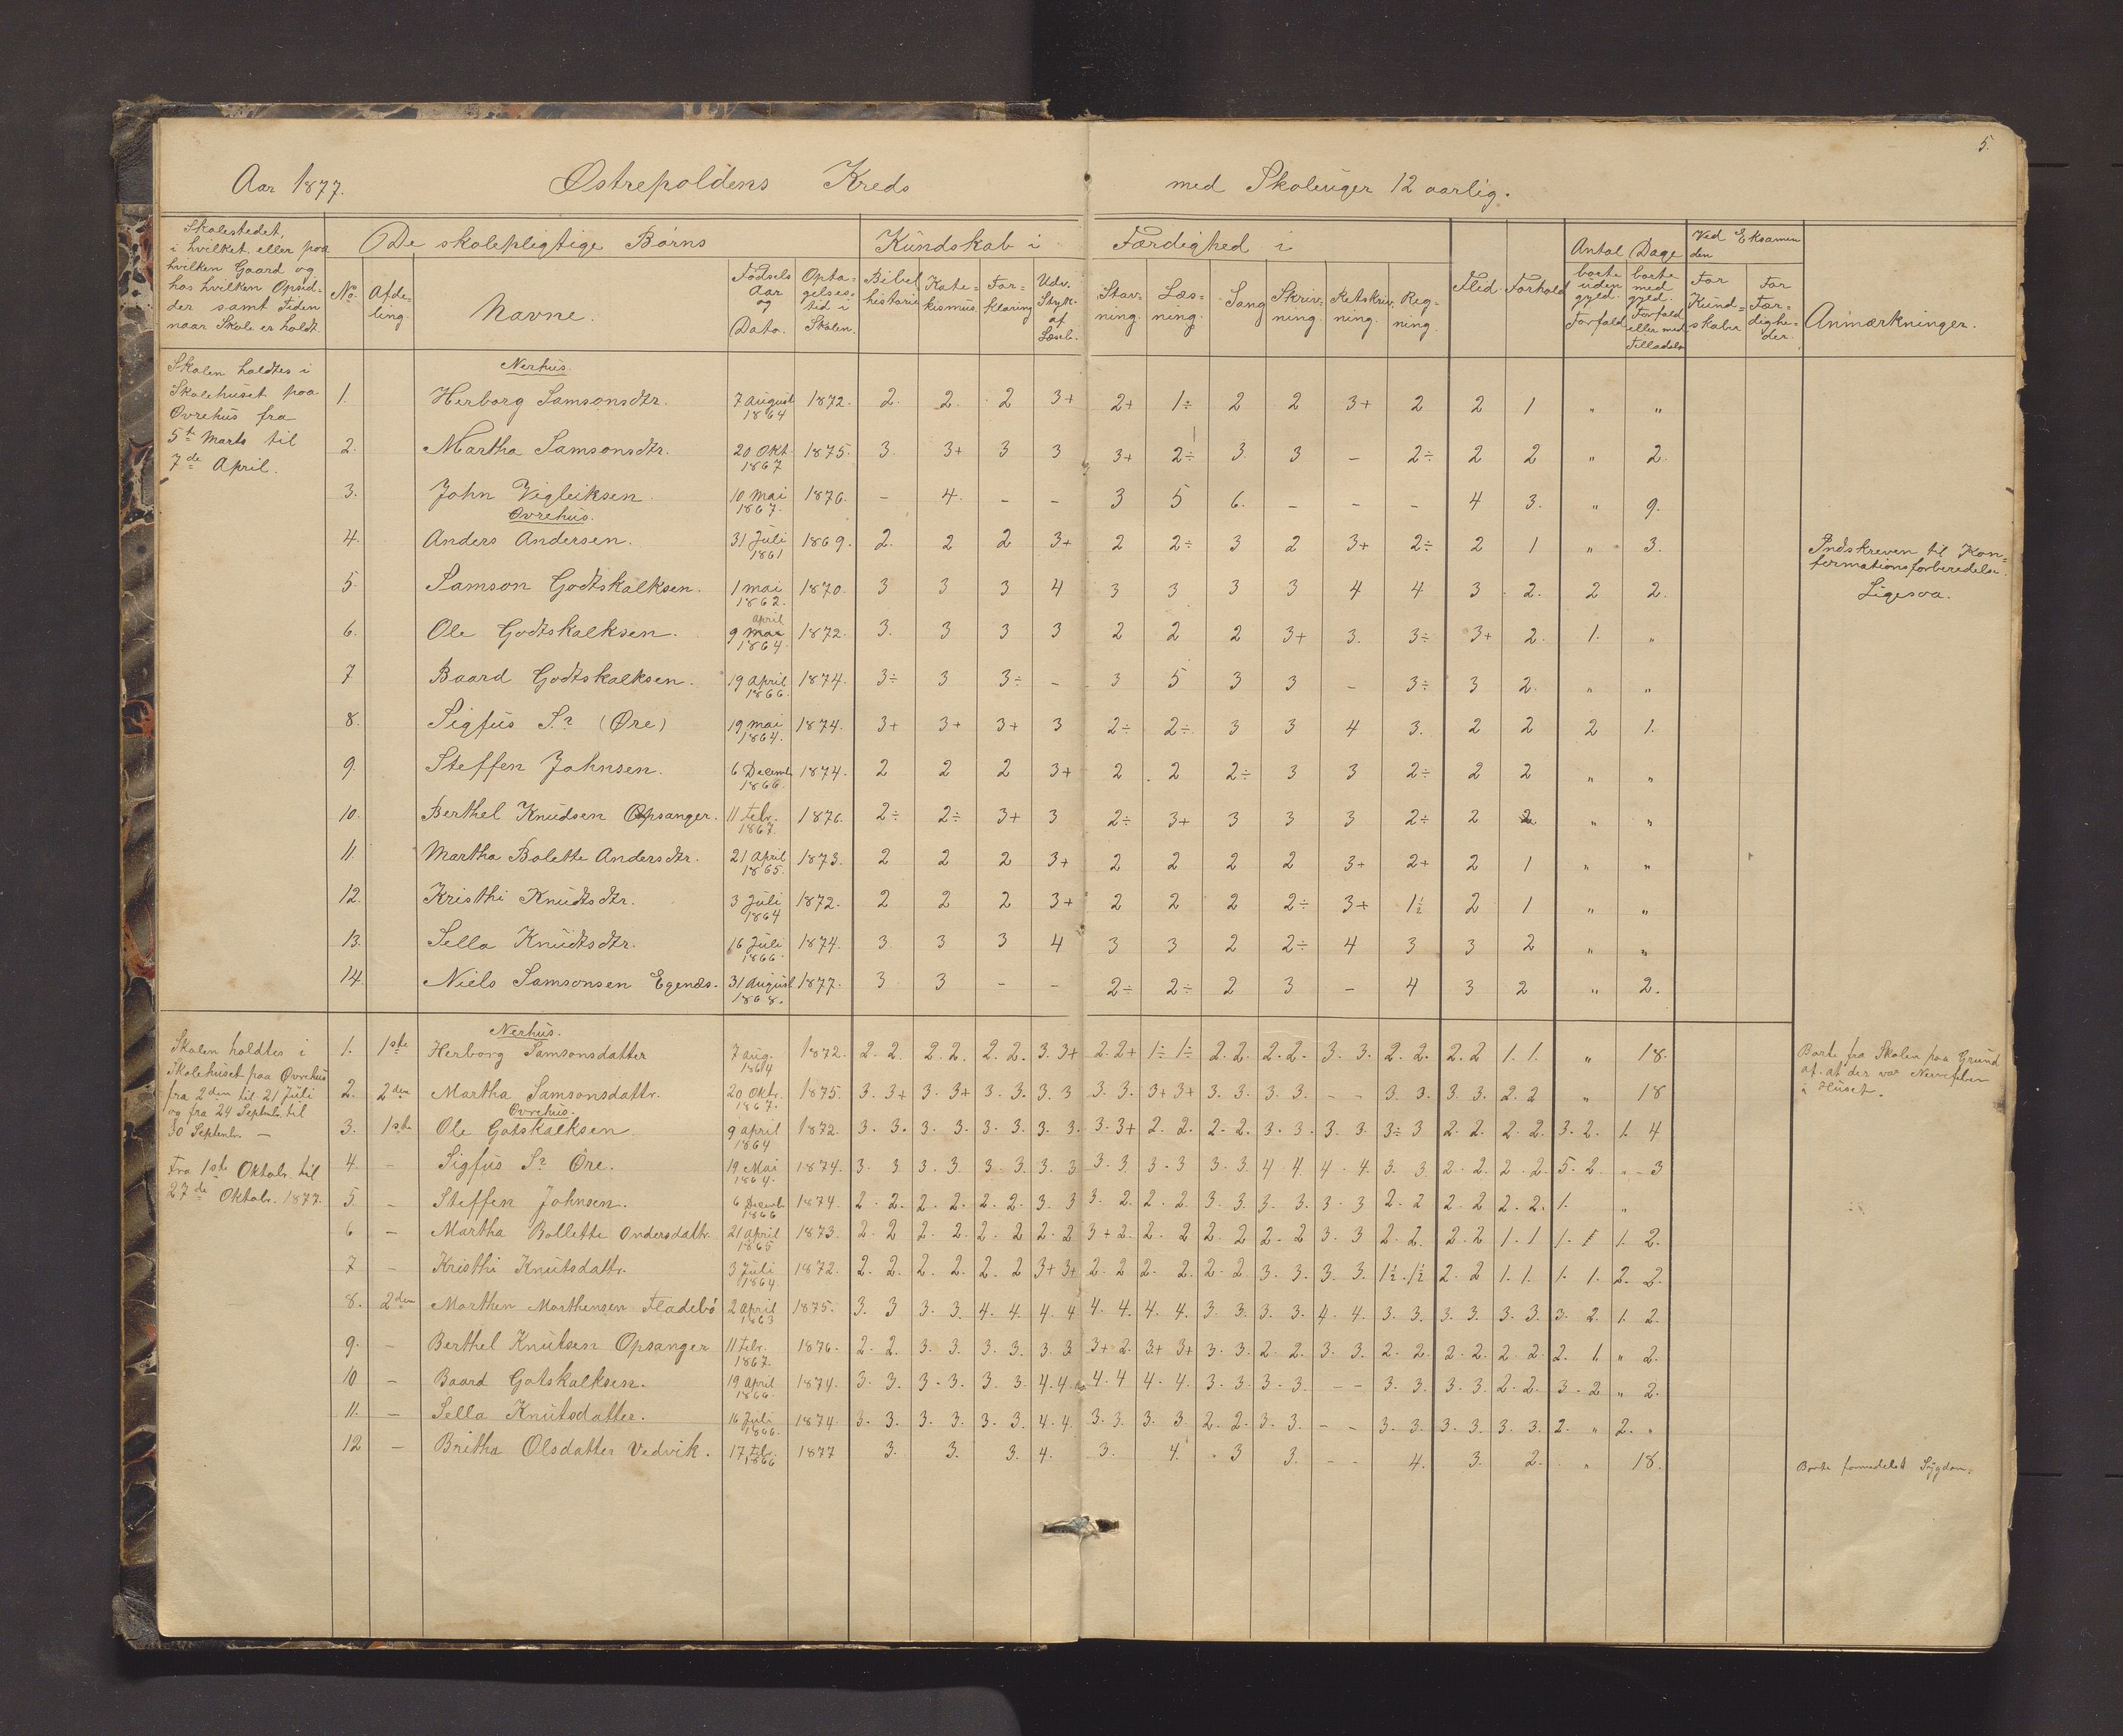 5.
Aar 1877. Østrepoldens Kreds med Skoleuger 12 aarlig.
Skolestedet, i hvilket eller paa hvilken Gaard og hos hvilken Opsid- der samt Tiden naar Skole er holdt.
De skolepligtige Børns
No. Afde- ling. Navne. Fødsels Aar og Dato. Opta- gelses- tid i Skolen.
Kundskab i
Bibel historie Kate- kismus. For- klaring Udv. Stykk. af Læseb.
Færdighed i
Stav- ning. Læs- ning. Sang Skriv- ning. Retskriv- ning. Reg- ning.
Flid. Forhold
Antal Dage
borte uden gyld. Forfald borte med gyld. Forfald eller med Tilladelse
Ved Eksamen den
For Kund- skaber For Fær- dighe- der.
Anmærkninger.
Skolen holdtes i
Skolehuset paa
Øvrehus fra
5te Marts til
7de April.
Nerhus.
1. Herborg Samsonsdtr. 7 August 1864 1872. 2. 2. 2 3+ 2+ 1÷ 2 2 3+ 2 2 1 " "
2. Martha Samsonsdtr. 20 Okt. 1867 1875. 3. 3+ 3 3 3+ 2÷ 3. 3 – 2÷ 2 2 " 2.
3. John Vigleiksen. 10 Mai 1867. 1876. – 4. – – 3 5 6. – – – 4 3. " 9.
Øvrehus.
4. Anders Andersen. 31 Juli 1861 1869. 2. 2 2 3+ 2 2÷ 3 2 3+ 2÷ 2 1 " 3. Indskreven til Kon- fermationsforberedelse.
5. Samson Godtskalksen. 1 Mai 1862. 1870. 3 3 3 4 3 3 3 3 4 4 3 2. 2 2. Ligesaa.
6. Ole Godtskalksen. 9 Mai april 1864. 1872. 3. 3 3 3 2 2 2 3+ 3. 3÷ 3+ 2. 1. "
7 Baard Godtskalksen. 19 April 1866. 1874. 3÷ 3 3÷ – 3 5 3 3 – 3÷ 3 2. " "
8. Sigfus Sr (Øre) 19 Mai 1864. 1874. 3+ 3+ 3+ 3 2÷ 2÷ 3 3 4 3. 2 2 2 1.
9. Steffen Johnsen. 6 Decemb. 1866. 1874. 2 2 2 3+ 2 2 2÷ 3 3 2÷ 2 2 " "
10. Berthel Knudsen Opsanger. 11 Febr. 1867. 1876. 2÷ 2÷ 3+ 3 2÷ 3+ 3 3 3 2÷ 2 2 " "
11. Martha Bolette Andersdtr. 21 April 1865. 1873. 2 2 2 3+ 2 2 2 2 3+ 2+ 2 1 " "
12. Kristhi Knudtsdtr. 3 Juli 1864 1872. 2 2 2 3+ 2 2 2 2÷ 3+ 1½ 2 1 " "
13. Sella Knudtsdtr. 16 Juli 1866. 1874. 3 3 3 4 3 3 2 2÷ 4 3 3 2 " "
14. Niels Samsonsen Egenæs. 31 August 1868. 1877. 3 3 – – 2÷ 2÷ 2 3 – 4 3 2 " 2.
Skolen holdtes i
Skolehuset paa Øvrehus
fra 2den til 21 Juli
og fra 24 Septemb. til
30 Septembr. –
Fra 1ste Oktobr. til
27de Oktobr. 1877.
Nerhus.
1. 1ste Herborg Samsonsdatter 7 Aug. 1864 1872. 2. 2. 2. 2. 2. 2. 3. 3+ 2. 2+ 1÷ 1÷ 2. 2. 2. 2. 3. 3. 2. 2. 2. 2 1. 1. " 18. Borte fra Skolen paa Grund af, at der var Nervefeber i Huset.
2. 2den Martha Samsonsdattr. 20 Oktr. 1867. 1875. 3. 3+ 3. 3+ 3. 3. 3. 3 3. 3. 3+ 3+ 3. 3. 3. 3. – – 3. 3. 3. 3. 2. 2 " 18
Øvrehus.
3. 1ste Ole Gotskalksen 9 April 1864 1872. 3. 3. 3. 3. 3. 3. 3. 3. 3. 3+ 2. 2. 2. 2. 3. 3. 3. 3. 3÷ 3 2. 2. 2. 2. 3. 2. 1. 4
4. – Sigfus Sr Öre. 19 Mai 1864. 1874. 3. 3 3. 3. 3. 3. 3. 3 3. 3. 3. 3 3. 3. 4 4. 4. 4. 3. 3. 2. 2. 2. 2. 5. 2. " 3
5. – Steffen Johnsen. 6 Decemb. 1866 1874. 2. 2. 2. 2. 2. 2. 3. 3 3. 2. 2. 2. 3. 3. 3. 3. 3. 3 2. 2 2. 2 2. 2. 1. "
6 – Martha Bollette Andersdattr. 21 April 1865 1873. 2. 2 2. 2. 2. 2 2. 2 3+ 2. 2. 2 2. 2 2. 2 3. 3 2. 2. 2. 2 1. 1 1. 1 1. 2.
7 – Kristhi Knutsdattr. 3 Juli 1864. 1872. 2. 2. 2. 2. 2. 2 3+ 3+ 2. 2 2. 2. 2. 2 3. 3. 3. 3. 1½. 1½ 2. 2 1. 1. 1. 1. 2. 2.
8. 2den Marthen Marthensen Fladebö 2 April 1863 1875. 3. 3 3. 3. 4. 4. 4. 4 4. 4. 4. 4. 3. 3. 3. 3. 4. 4. 3. 3. 3. 3. 3. 3 3. 2. 1. 2.
9. – Berthel Knutsen Opsanger 11 Febr. 1867. 1876. 2. 2. 3. 3. 3. 3. 3. 3 3+ 2. 3+ 3+ 3. 3. 2. 2. 3. 3. 2. 2. 2. 2. 2. 2. 2. 1. " 2.
10 – Baard Gotskalksen. 19 April 1866. 1874. 3. 3. 3. 3. 3. 3. 4. 4. 4. 4 4. 4. 3. 3. 3. 3. – – 3. 3. 3. 3. 2. 2. 3. 2 " 2.
11. – Sella Knutsdatter. 16 Juli 1866. 1874. 3. 3. 3. 3. 3. 3. 4. 4. 3. 3. 3. 3. 2. 2. 3. 3. – – 3. 3. 3. 3. 3. 3. 2. " 2. "
12 – Britha Olsdatter Vedvik. 17 Febr. 1866 1877 3. 3. 3. 4. 3. 4. 3 3. – – 4. 3. 2. " 18. Borte formedelst Sygdom.